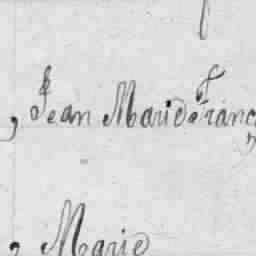 , Jean Marie Franç
, Marie